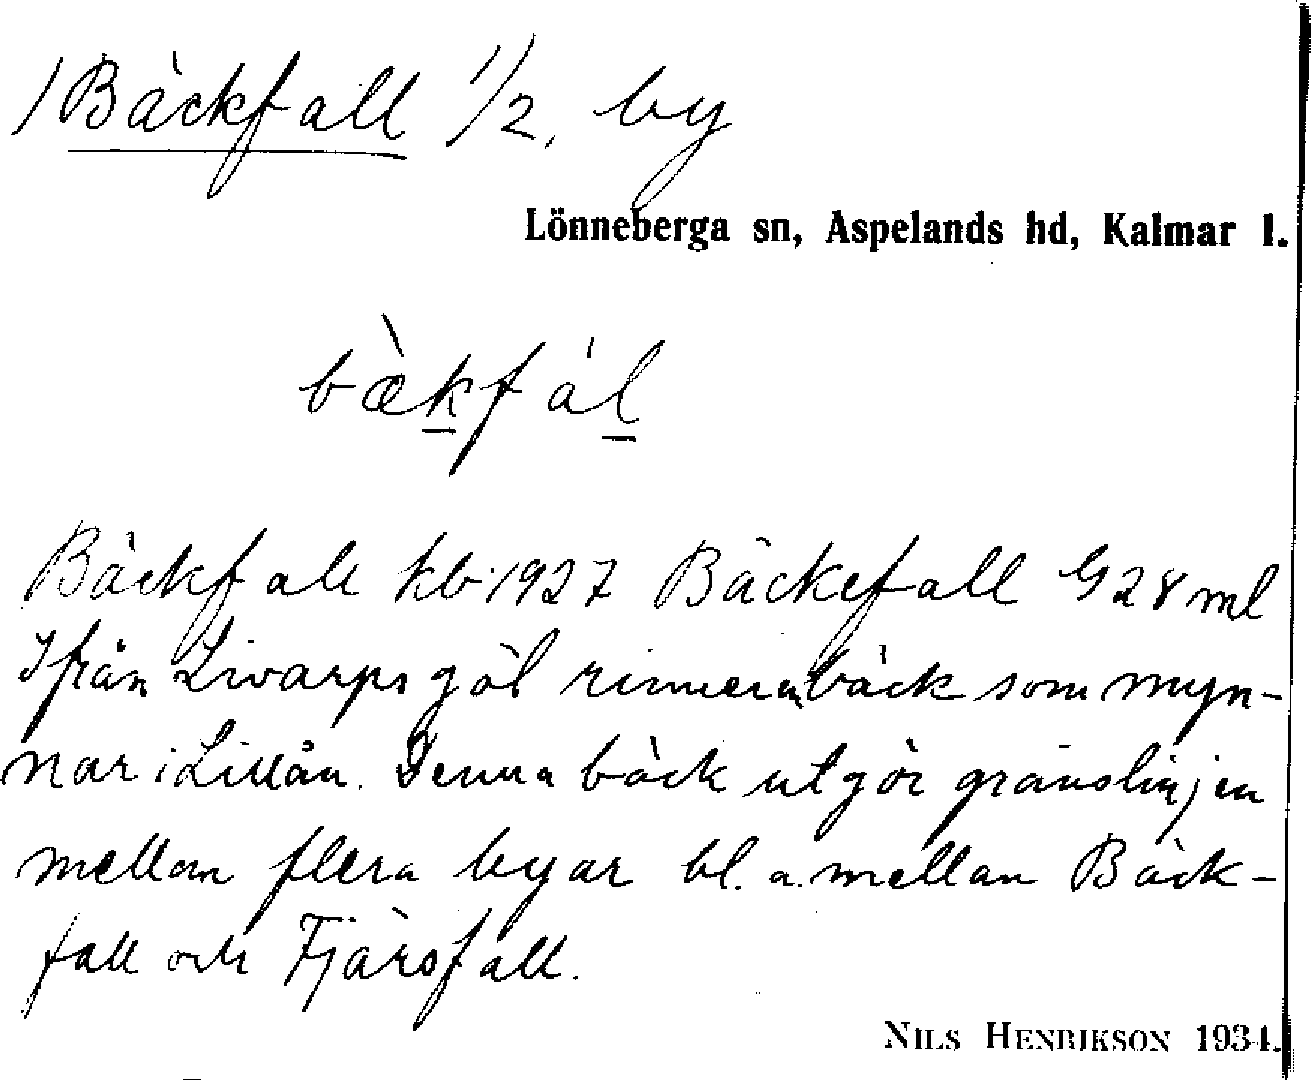 /Bäckfall 1/2, by
Lönneberga sn, Aspelands hd, Kalmar l.
bækfál
Bäckfall kb 1927 Bäckefall G28 ml
Ifrån Livarps göl rinner en bäck som myn-
nar i Lillån. Denna bäck utgör gränslinjen
mellan flera byar bl. a. mellan Bäck-
fall och Fjärsfall.
NILS HENRIKSON 1934.